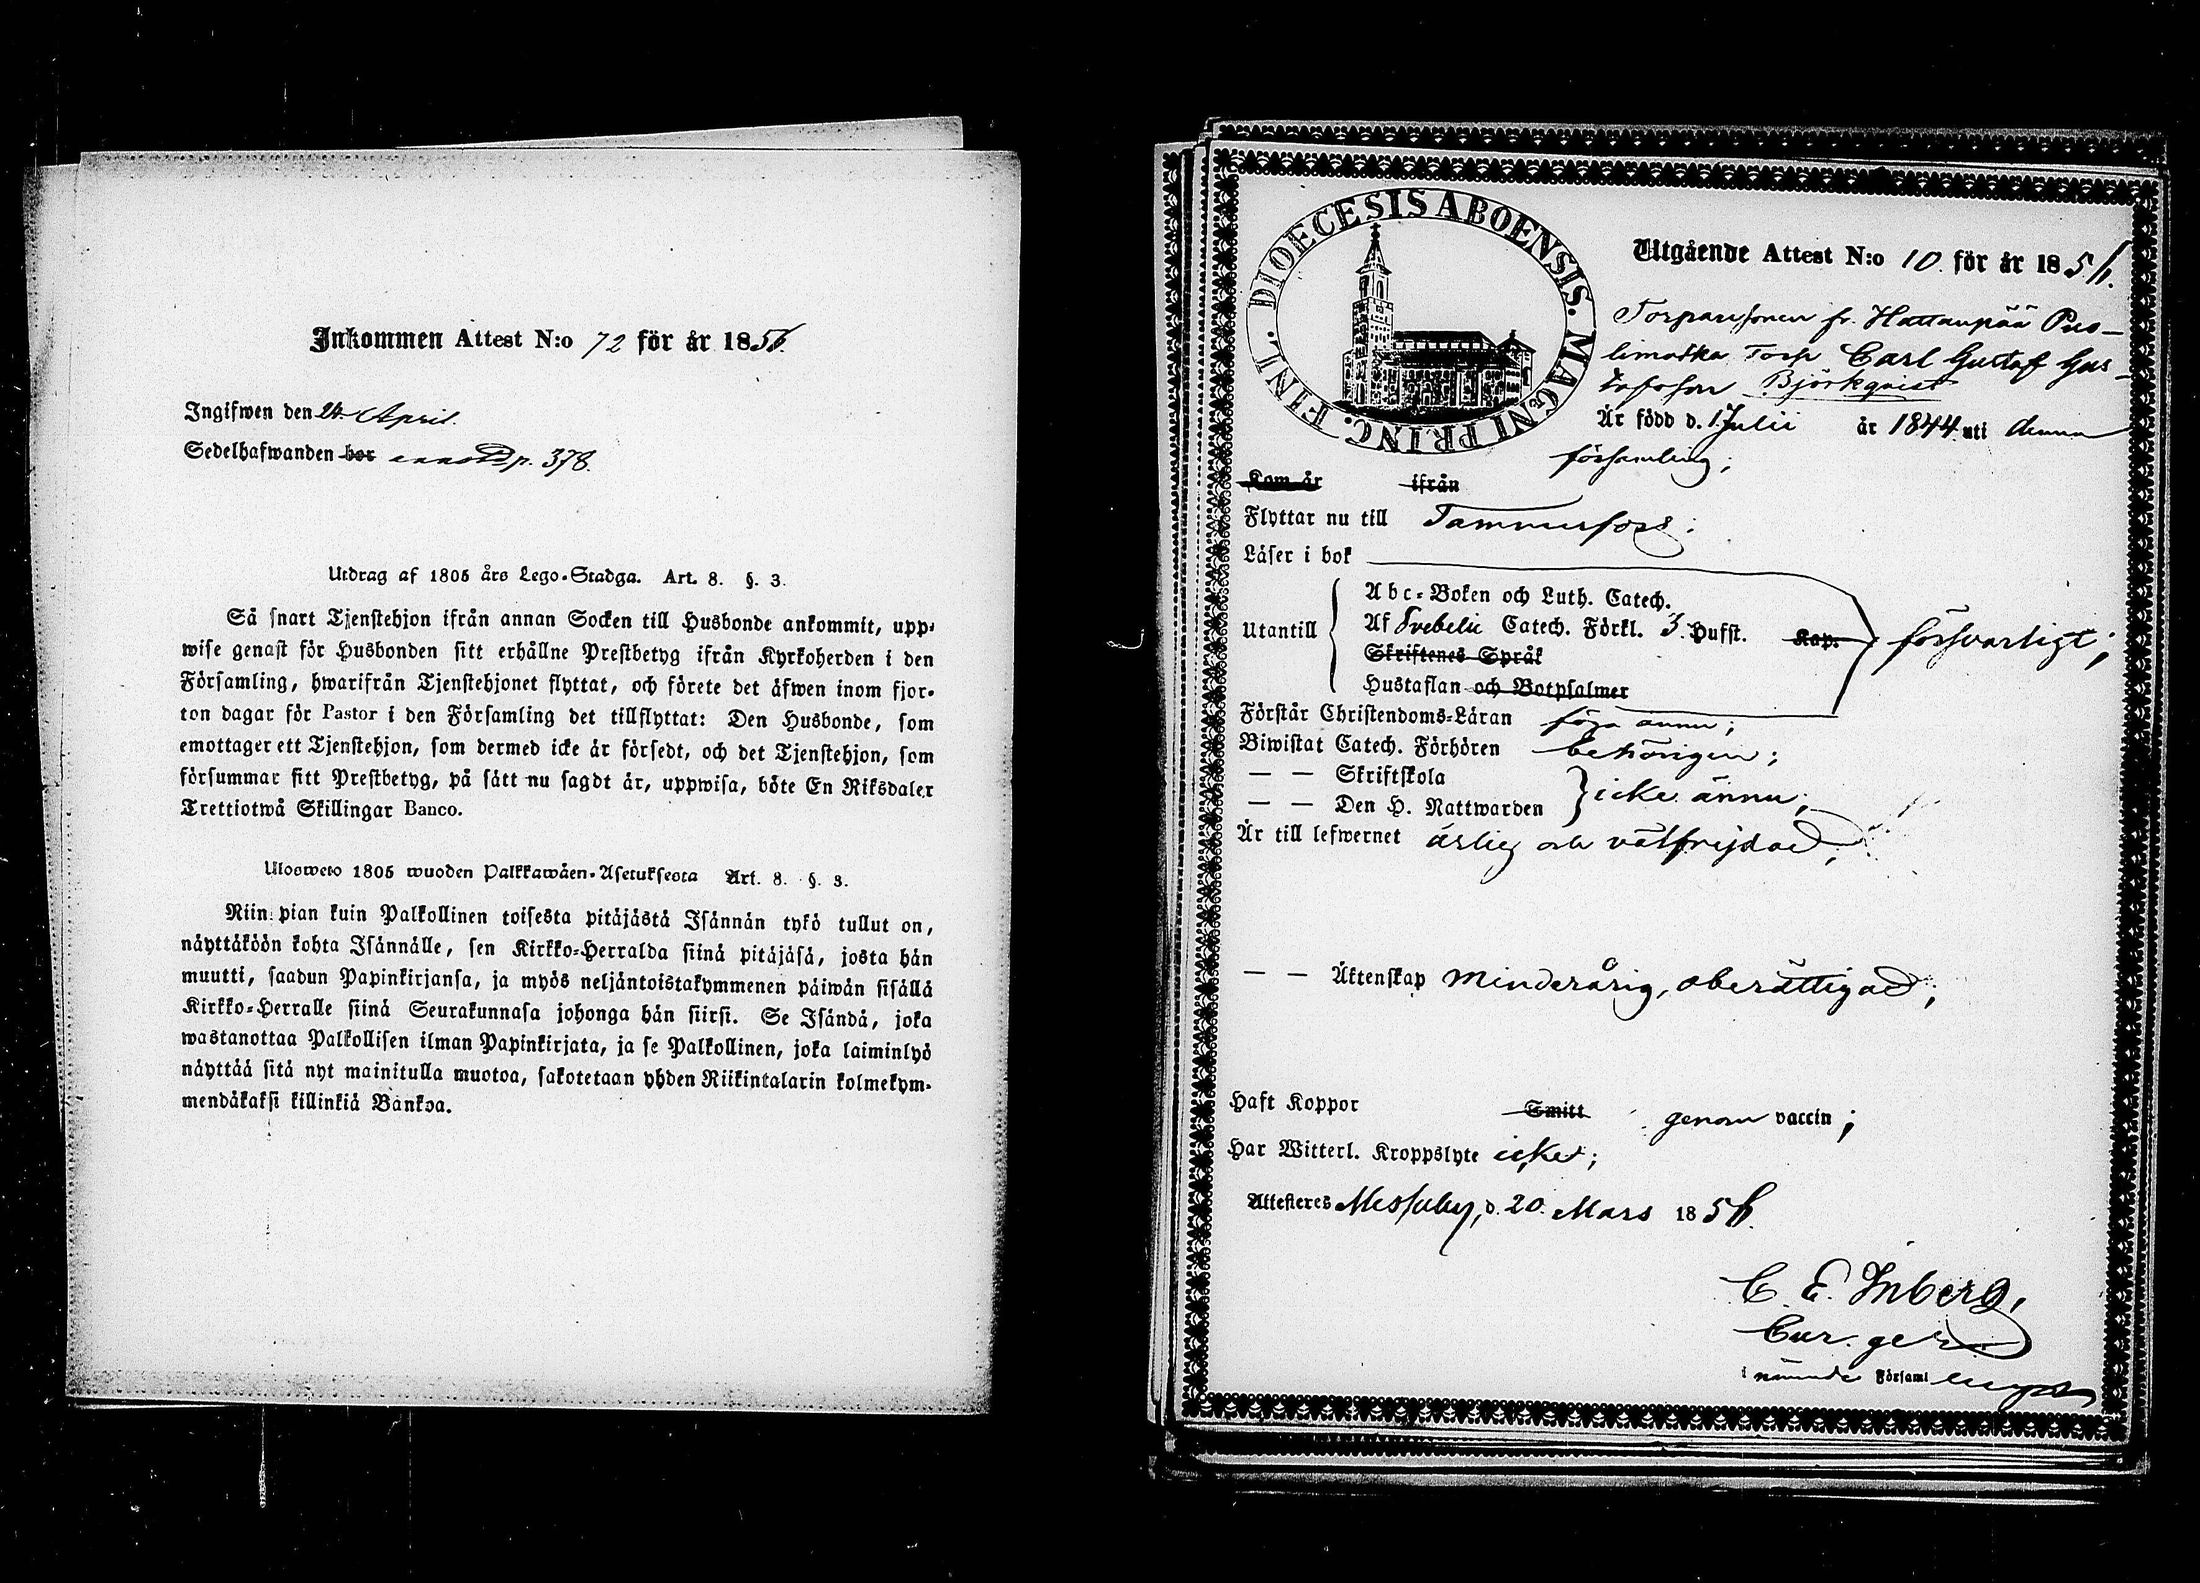 Inkommen Attest N:o 72 för år 1856.
Ingifwen den 24 April.
Sedelhafwanden bor p. 378.
Utdrag af 1805 års Lego-Stadga. Art. 8. §. 3.
Så snart Tjenstehjon ifrån annan Socken till Husbonde ankommit, upp-
wise genast för Husbonden sitt erhållne Prestbetyg ifrån Kyrkoherden i den
Församling, hwarifrån Tjenstehjonet flyttat, och förete det äfwen inom fjor-
ton dagar för Pastor i den Församling det tillflyttat: Den Husbonde, som
emottager ett Tjenstehjon, som dermed icke är försedt, och det Tjenstehjon, som
försummar sitt Prestbetyg, på sätt nu sagdt är, uppwisa, böte En Riksdaler
Trettiotwå Skillingar Banco.
Ulosweto 1805 wuoden Palkkawäen-Asetuksesta Art. 8. §. 3.
Niin pian kuin Palkollinen toisesta pitäjästä Isännän tykö tullut on,
näyttäköön kohta Isännälle, sen Kirkko-Herralda siinä pitäjäsä, josta hän
muutti, saadun Papinkirjansa, ja myös neljäntoistakymmenen päiwän sisällä
Kirkko-Herralle siinä Seurakunnasa johonga hän siirsi. Se Isändä, joka
wastanottaa Palkollisen ilman Papinkirjata, ja se Palkollinen, joka laiminlyö
näyttää sitä nyt mainitulla muotoa, sakotetaan yhden Riikintalarin kolmekym-
mendäkaksi killinkiä Bankoa.
DIOECESIS ABOENSIS. MAGNI PRINC. FINL.
Utgående Attest N:o 10. för år 1856.
Torparesonen fr. Hattanpää Puo-
limatka Torp Carl Gustaf Gus-
tafsson Björkqvist
Är född d. 1 Julii år 1844 uti denna
församling;
Kom år ifrån
Flyttar nu till Tammerfors;
Läser i bok
Abc-Boken och Luth. Catech.
Utantill Af Svebelii Catech. Förkl. 3. Hufst. Kap. försvarligt;
Skriftenes Språk
Hustaflan och Botpsalmer
Förstår Christendoms-Läran föga ännu;
Biwistat Catech. Förhören behörigen;
— — Skriftskola
— — Den H. Nattwarden icke ännu;
Är till lefwernet ärlig och välfrejdad;
— — Äktenskap minderårig, oberättigad;
Haft Koppor Smitt genom vaccin;
Har Witterl. Kroppslyte icke;
Attesteres Messuby, d. 20. Mars 1856.
C. E. Inberg,
Cur. ger
i nämnde Församlingar